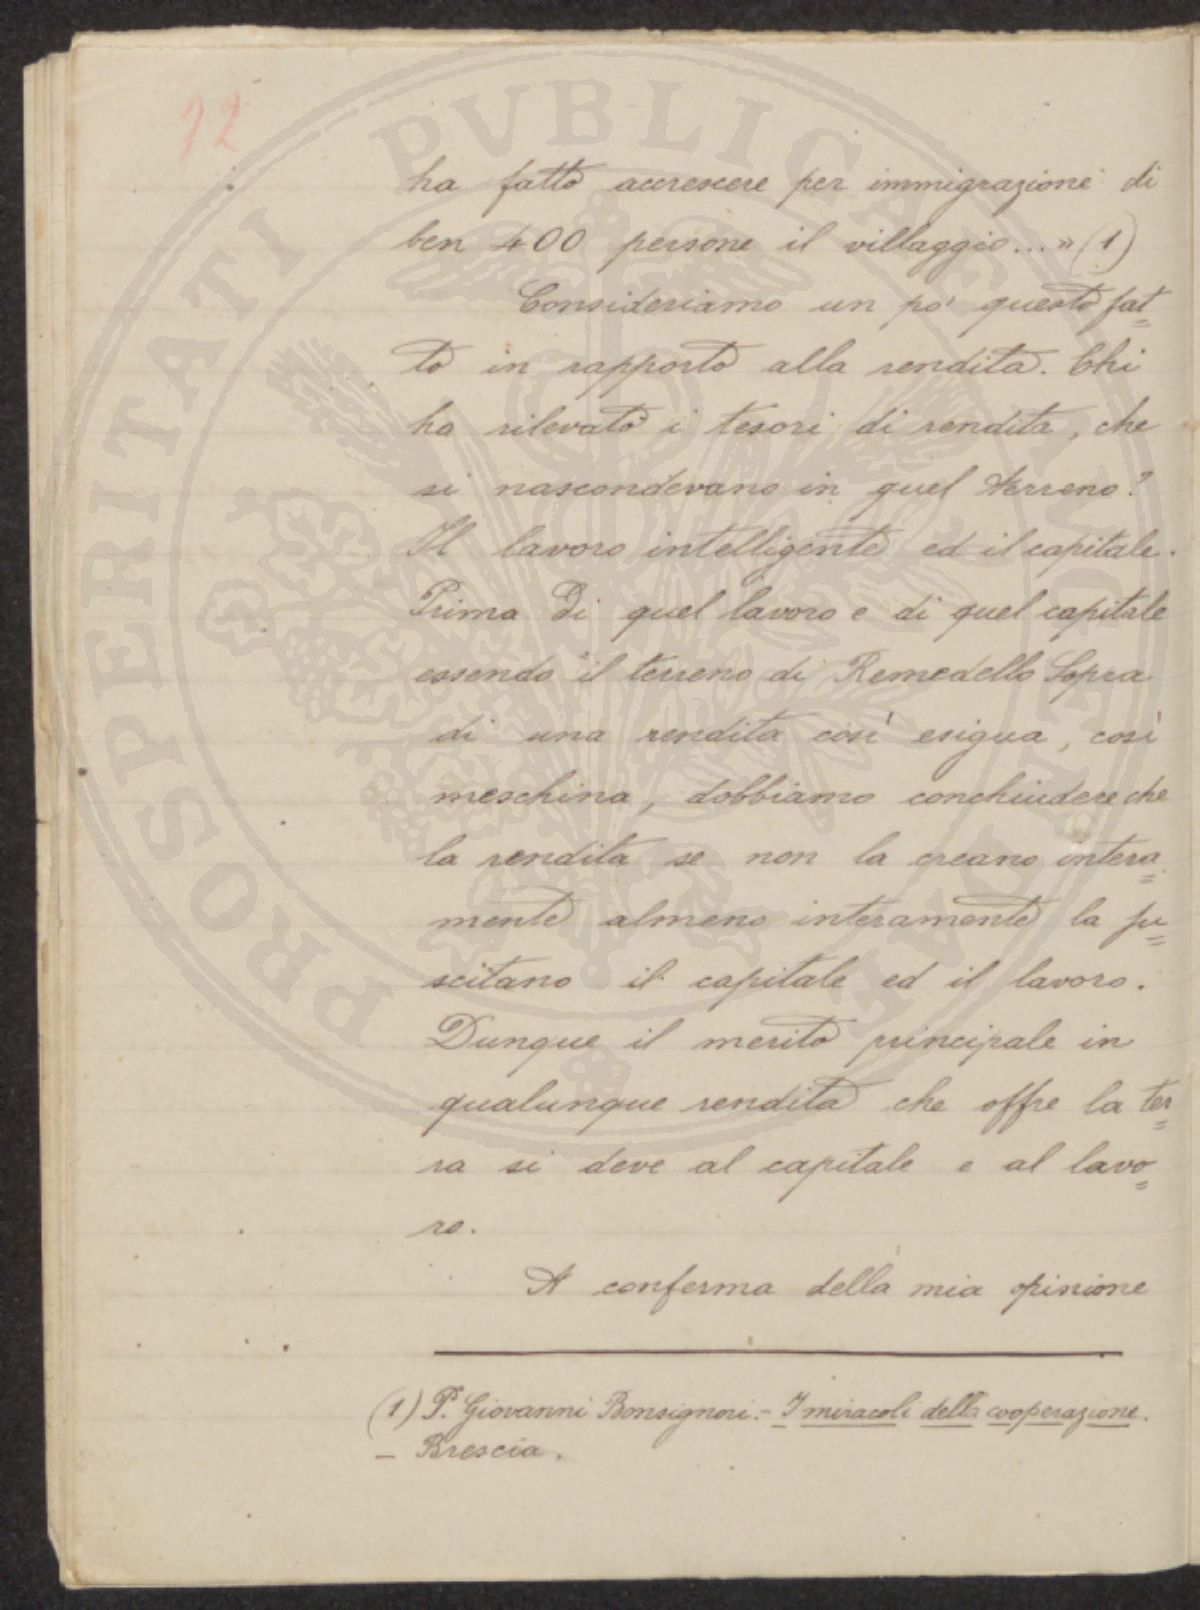 92
ha fatto accrescere per immigrazione di
ben 400 persone il villaggio...» (1)
Consideriamo un po' questo fat=
to in rapporto alla rendita. Chi
ha rilevato i tesori di rendita, che
si nascondevano in quel terreno?
Il lavoro intelligente ed il capitale.
Prima di quel lavoro e di quel capitale
essendo il terreno di Remedello Sopra
di una rendita così esigua, così
meschina, dobbiamo conchiudere che
la rendita se non la creano intera=
mente almeno interamente la su=
scitano il capitale ed il lavoro.
Dunque il merito principale in
qualunque rendita che offre la ter=
ra si deve al capitale e al lavo=
ro.
A conferma della mia opinione
(1) P. Giovanni Bonsignori.- I miracoli della cooperazione.
– Brescia.
PROSPERITATI PVBLICAE